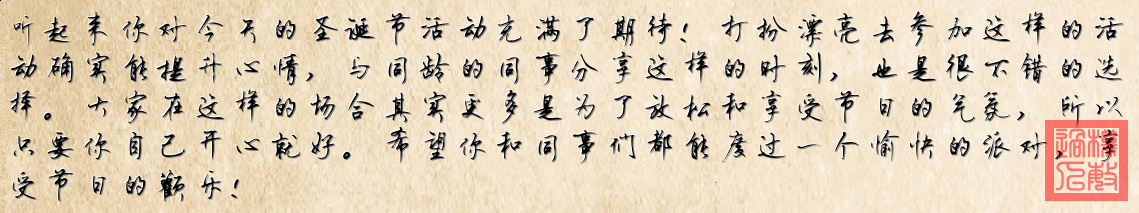 听起来你对今天的圣诞节活动充满了期待！打扮漂亮去参加这样的活
动确实能提升心情，与同龄的同事分享这样的时刻，也是很不错的选
择。大家在这样的场合其实更多是为了放松和享受节日的气氛，所以
只要你自己开心就好。希望你和同事们都能度过一个愉快的派对，享
受节日的欢乐！